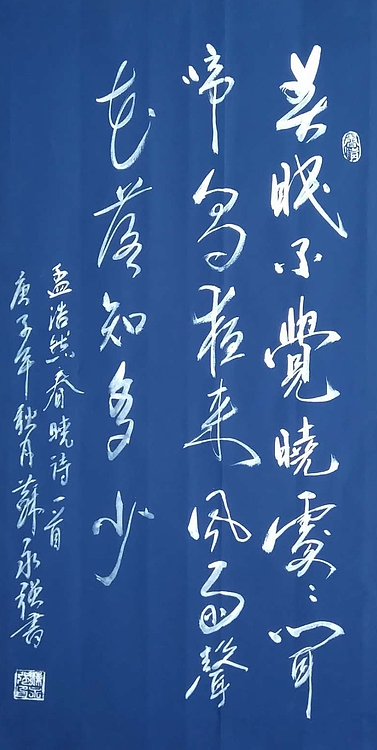 春眠不覺曉處〻聞
啼鳥夜来風雨聲
花落知多少
孟浩然春曉诗一首
庚子年秋月蘇永强書